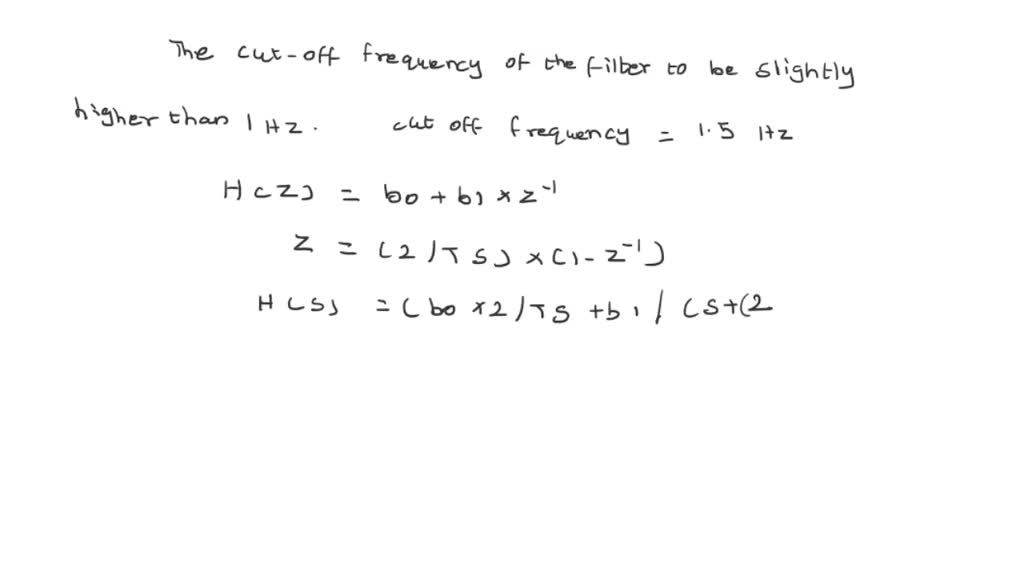 The cut-off frequency of the filter to be slightly
higher than 1 Hz. cut off frequency = 1.5 Hz
H(z) = b0 + b1 × z⁻¹
z = (2/Ts) × (1 - z⁻¹)
H(s) = (b0 × 2/Ts + b1 / (s+(2